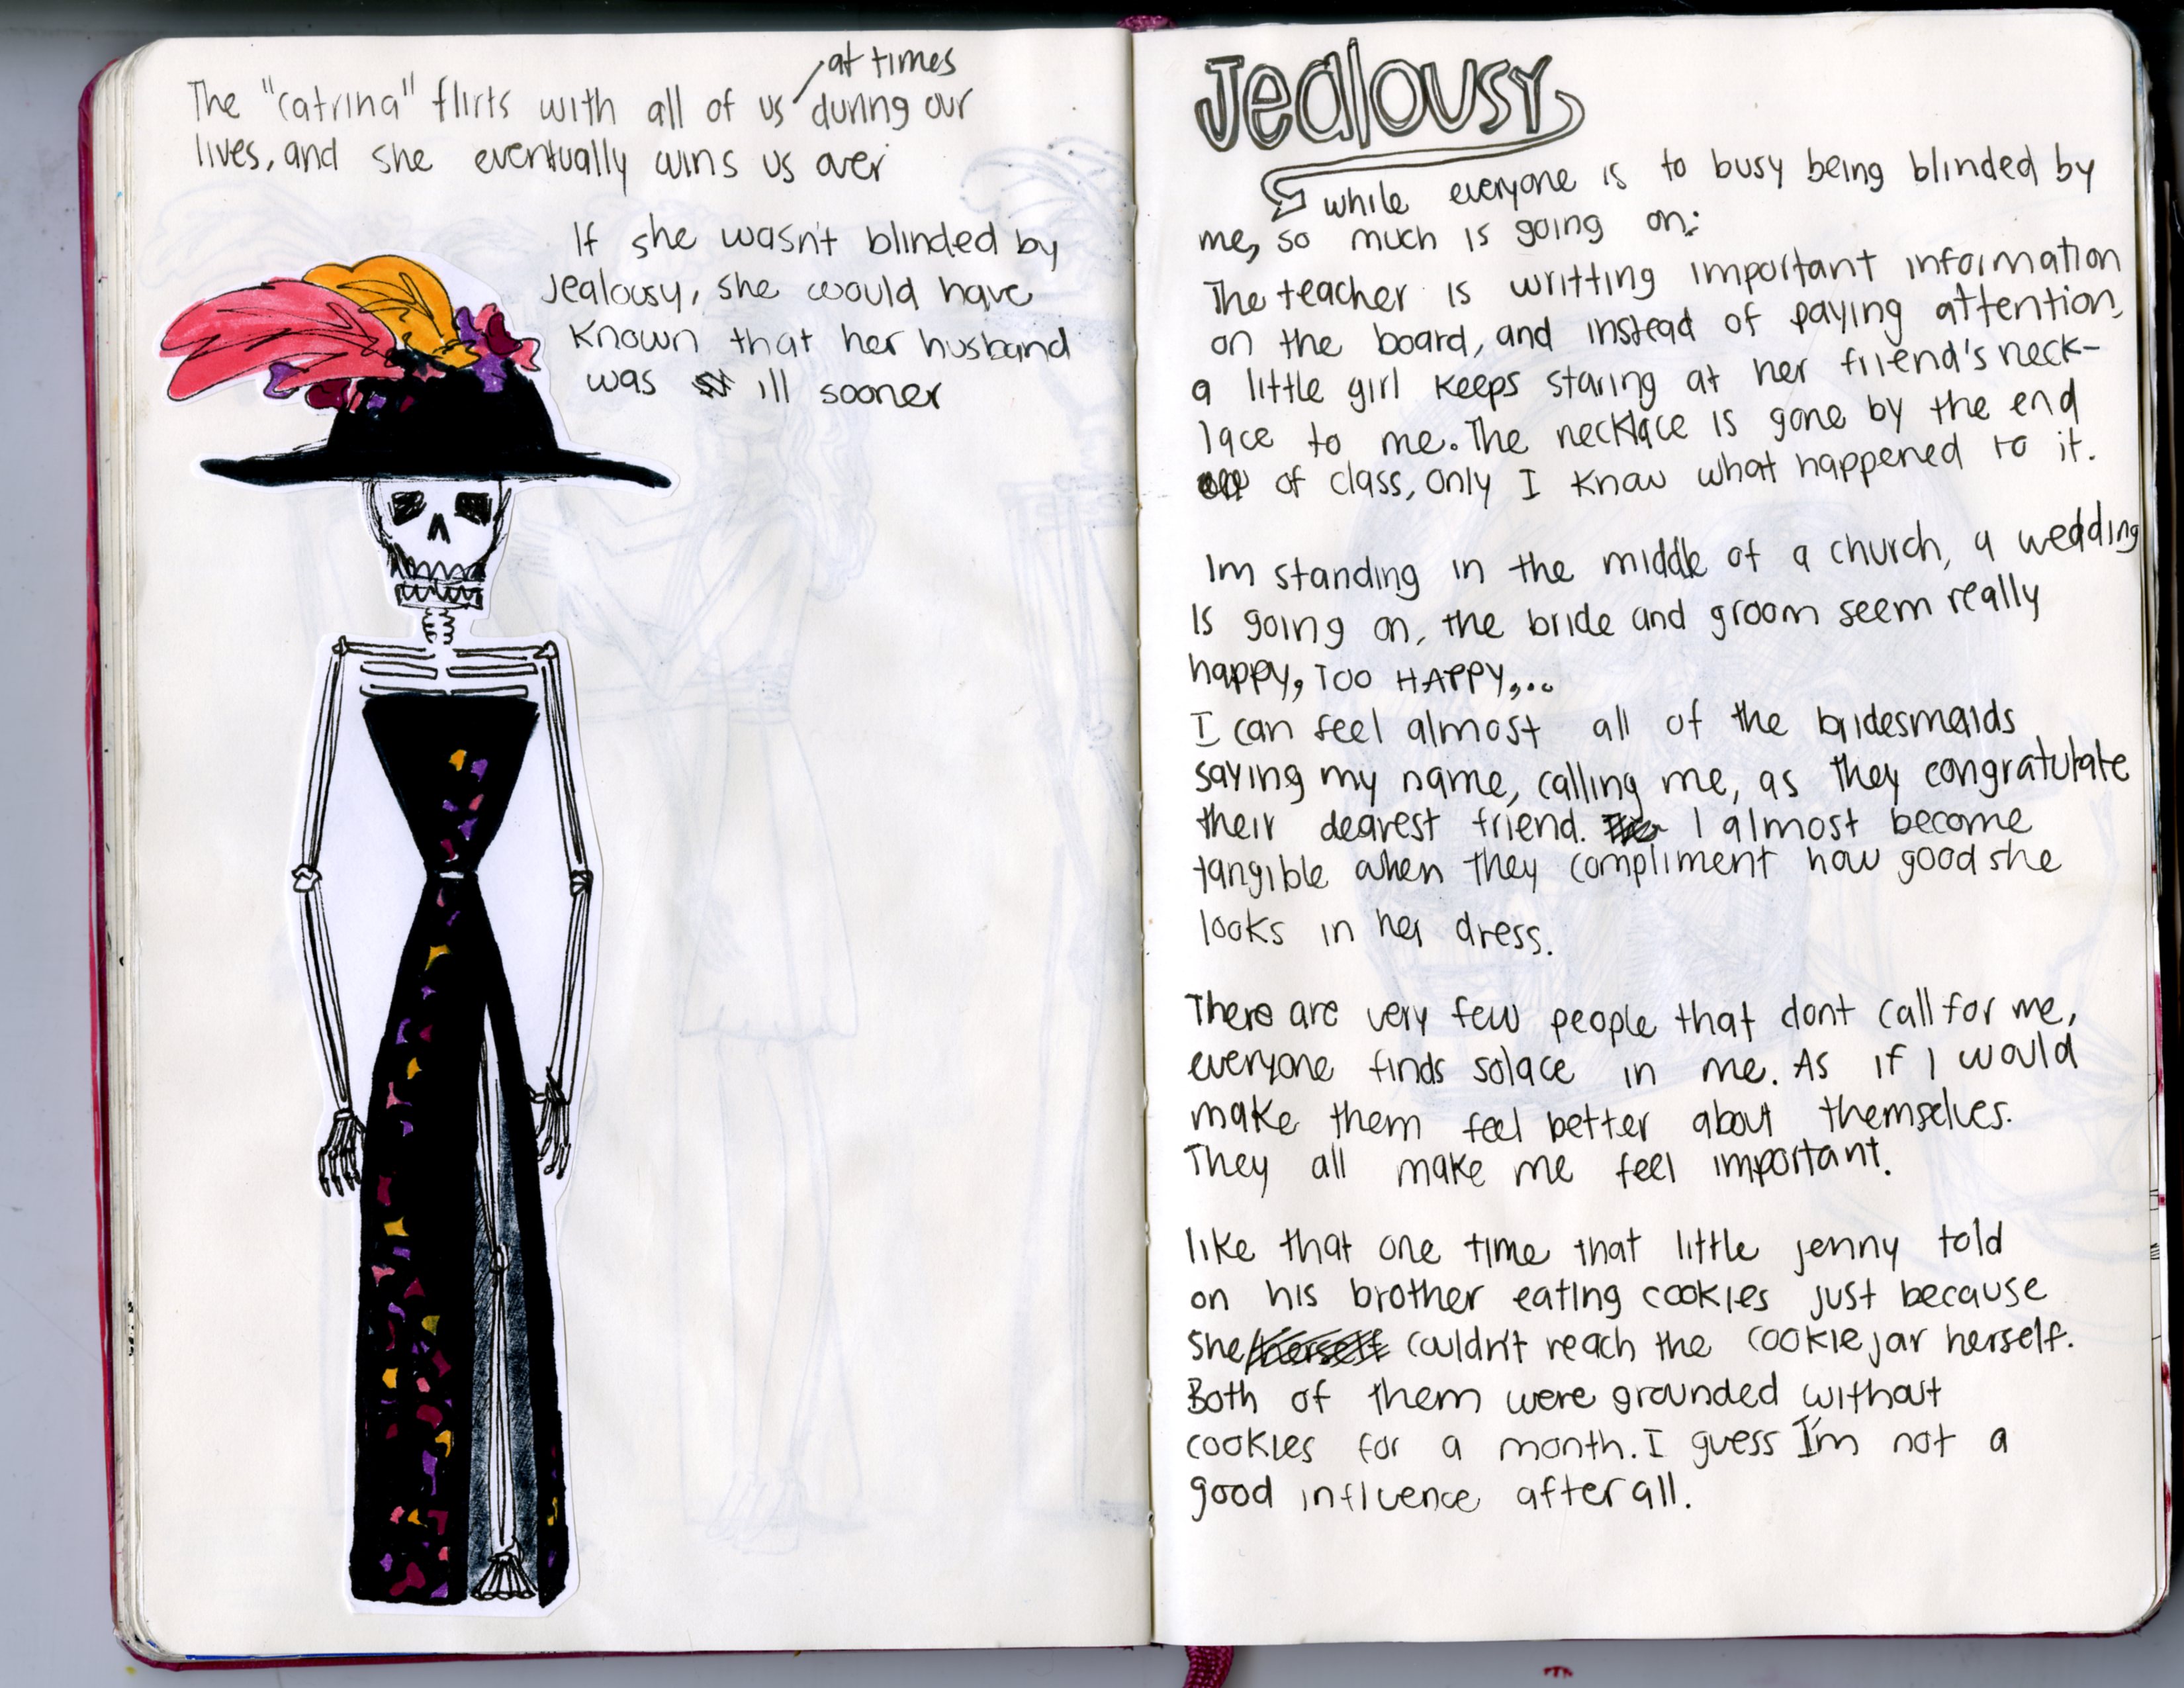 at times
The "catrina" flirts with all of us during our
lives, and she eventually wins us over
If she wasn't blinded by
Jealousy, she would have
known that her husband
was ill sooner
Jealousy
while everyone is to busy being blinded by
me, so much is going on:
The teacher is writting important information
on the board, and instead of paying attention,
a little girl keeps staring at her friend's neck-
lace to me. The necklace is gone by the end
of class, only I know what happened to it.
Im standing in the middle of a church, a wedding
is going on, the bride and groom seem really
happy, TOO HAPPY,...
I can feel almost all of the bridesmaids
saying my name, calling me, as they congratulate
their dearest friend. I almost become
tangible when they compliment how good she
looks in her dress.
There are very few people that dont call for me,
everyone finds solace in me. As if I would
make them feel better about themselves.
They all make me feel important.
like that one time that little jenny told
on his brother eating cookies just because
she couldn't reach the cookie jar herself.
Both of them were grounded without
cookies for a month. I guess I'm not a
good influence after all.